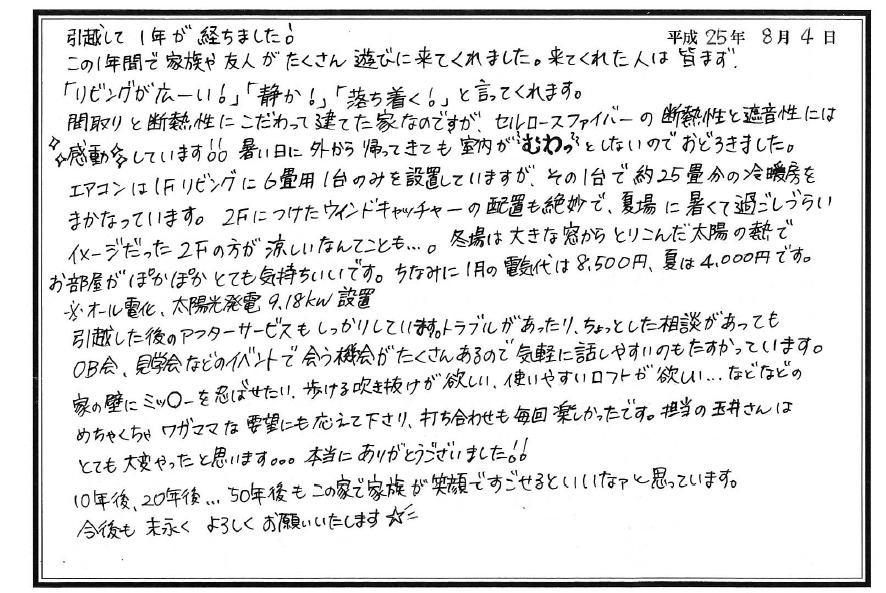 平成 25年 8月 4日
引越して 1年が 経ちました!
この1年間で 家族や 友人 が たくさん 遊びに 来てくれました。来てくれた人は 皆まず、
「リビングが広ーい!」「静か!」「落ち着く!」と言ってくれます。
間取り と 断熱性に こだわって 建てた 家なのですが、セルロースファイバーの 断熱性と遮音性には
感動 しています!! 暑い日に 外から 帰ってきても 室内が "むわっ" としないので おどろきました。
エアコン は 1F リビング に 6畳用 1台 のみを 設置していますが、その 1台で 約25畳分の 冷暖房を
まかなっています。 2Fにつけた ウインドキャッチャー の 配置も 絶妙で、夏場に 暑くて 過ごしづらい
イメージだった 2Fの方が 涼しいなんてことも…。 冬場は 大きな窓から とりこんだ 太陽の熱で
お部屋が ぽかぽか とても気持ちいいです。 ちなみに 1月の 電気代は 8,500円、夏は 4,000円です。
※オール電化、太陽光発電 9.18kw 設置
引越した後の アフターサービスも しっかりしています。トラブルがあったり、ちょっとした相談があっても
OB会、見学会などのイベントで 会う機会が たくさんあるので 気軽に話しやすいのもたすかっています。
家の壁に ミッ○ーを 忍ばせたい、歩ける吹き抜けが 欲しい、使いやすいロフトが 欲しい… などなどの
めちゃくちゃ ワガママな 要望にも 応えて下さり、打ち合わせも 毎回 楽しかったです。担当の 玉井さんは
とても 大変やったと思います。。。 本当に ありがとうございました!!
10年後、20年後… 50年後も この家で家族が 笑顔ですごせるといいなァと 思っています。
今後も 末永く よろしく お願いいたします☆